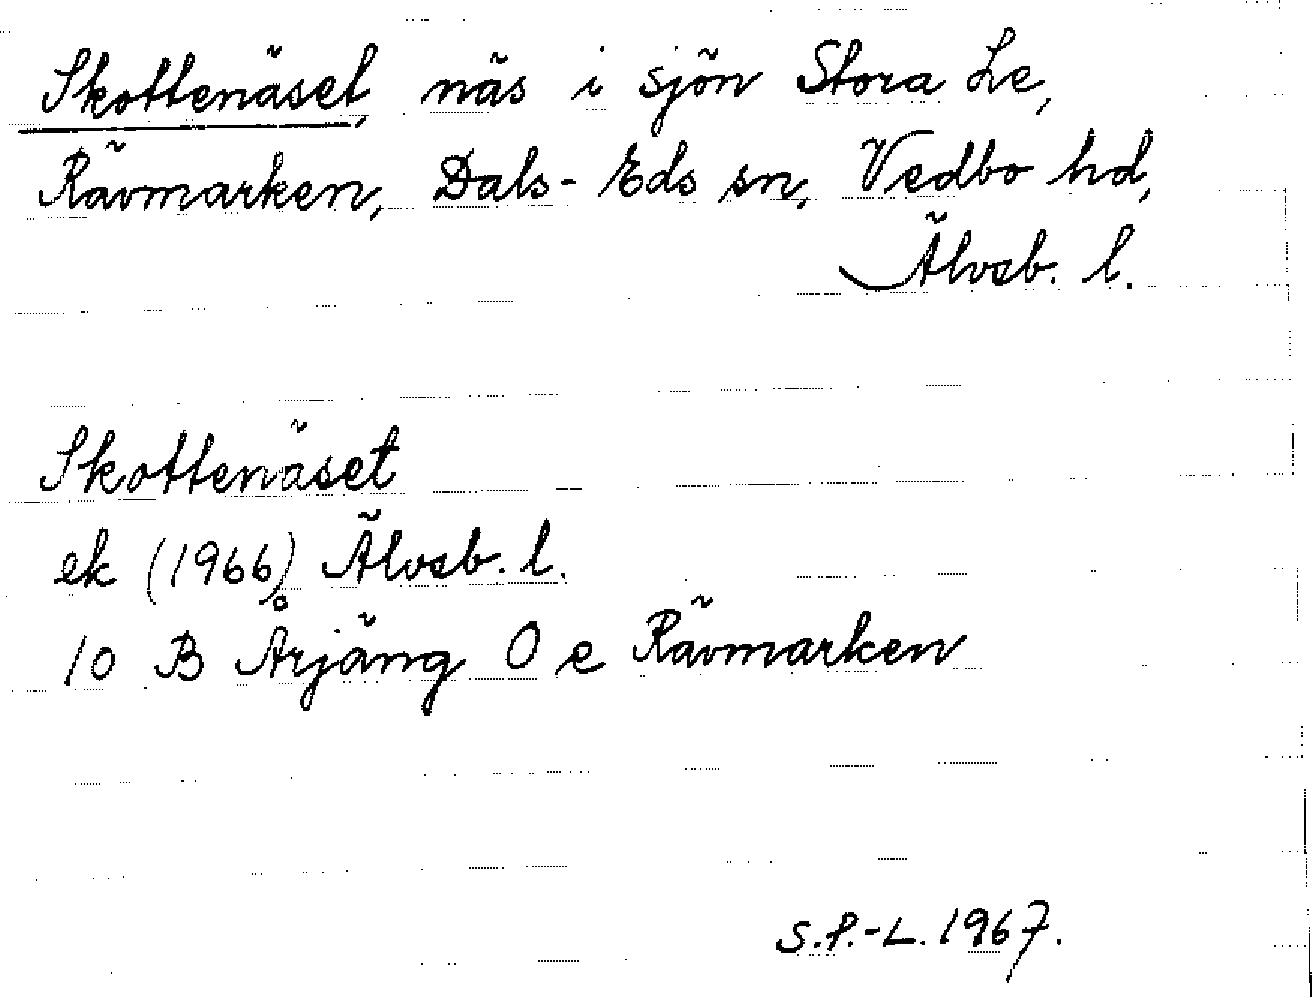 Skottenäset, näs i sjön Stora Le,
Rävmarken, Dals-Eds sn, Vedbo hd,
Älvsb. l.
Skottenäset
ek (1966) Älvsb. l.
10 B Årjäng O e Rävmarken
S.P.-L. 1967.